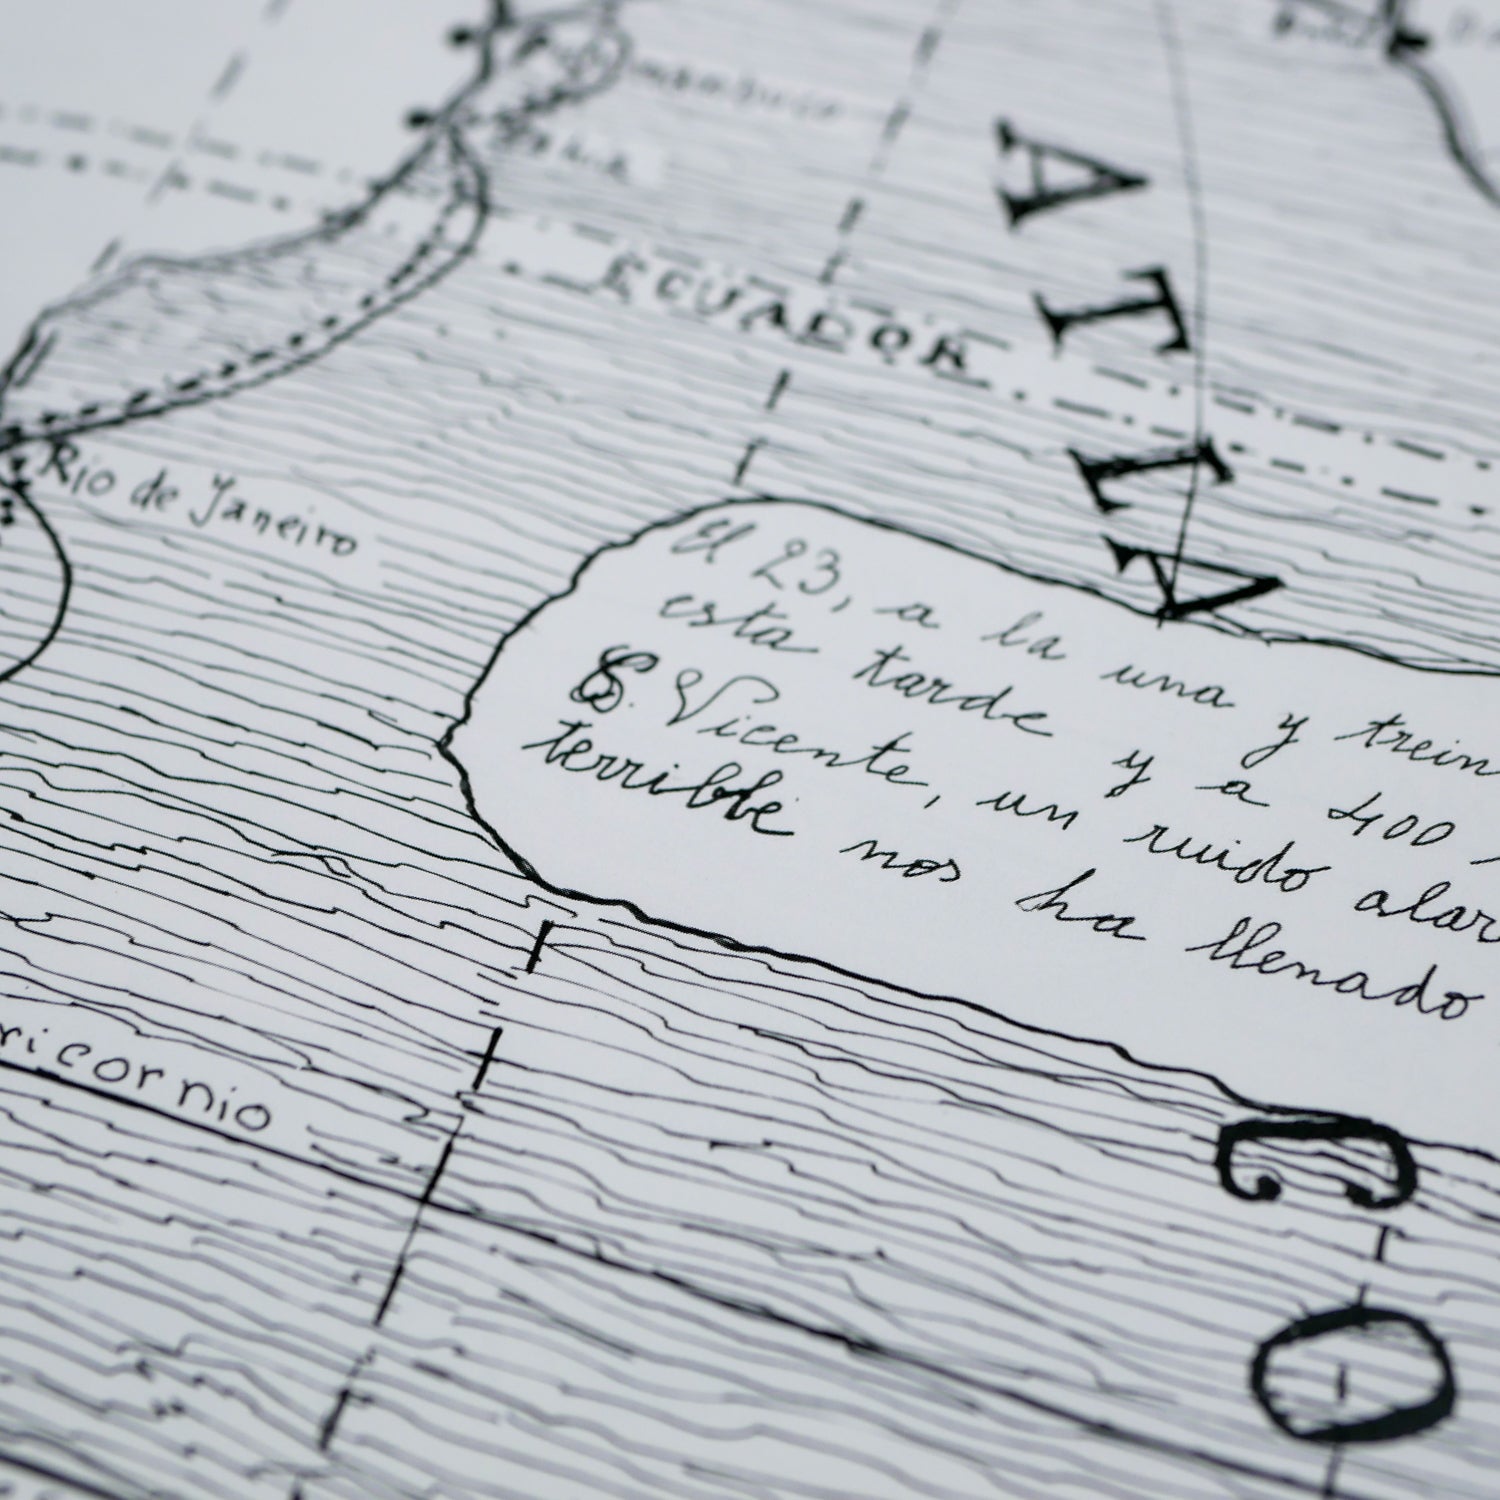 Bahia
ECUADOR
Rio de Janeiro
El 23, a la una y trein
esta tarde y a 400
S. Vicente, un ruido alar
terrible nos ha llenado
ricornio
A
T
L
A
C
O